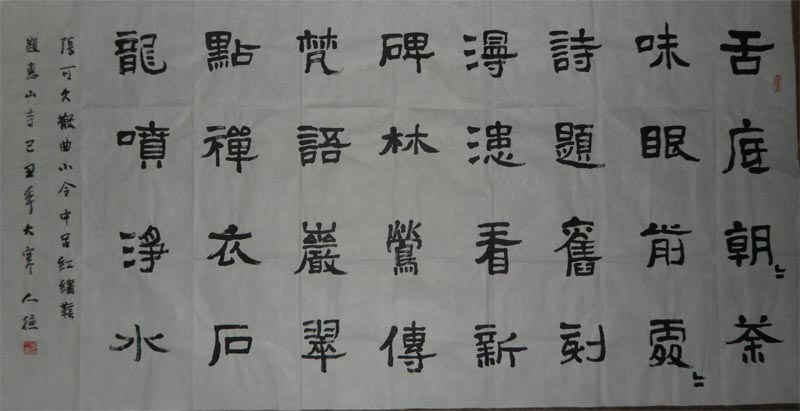 舌底朝〻茶
味眼前處〻
詩題舊刻
漫漶看新
碑林鶯傳
梵語巖翠
點禪衣石
龍噴淨水
張可久散曲小令中呂紅繡鞋
題惠山寺己丑年大寒 人德